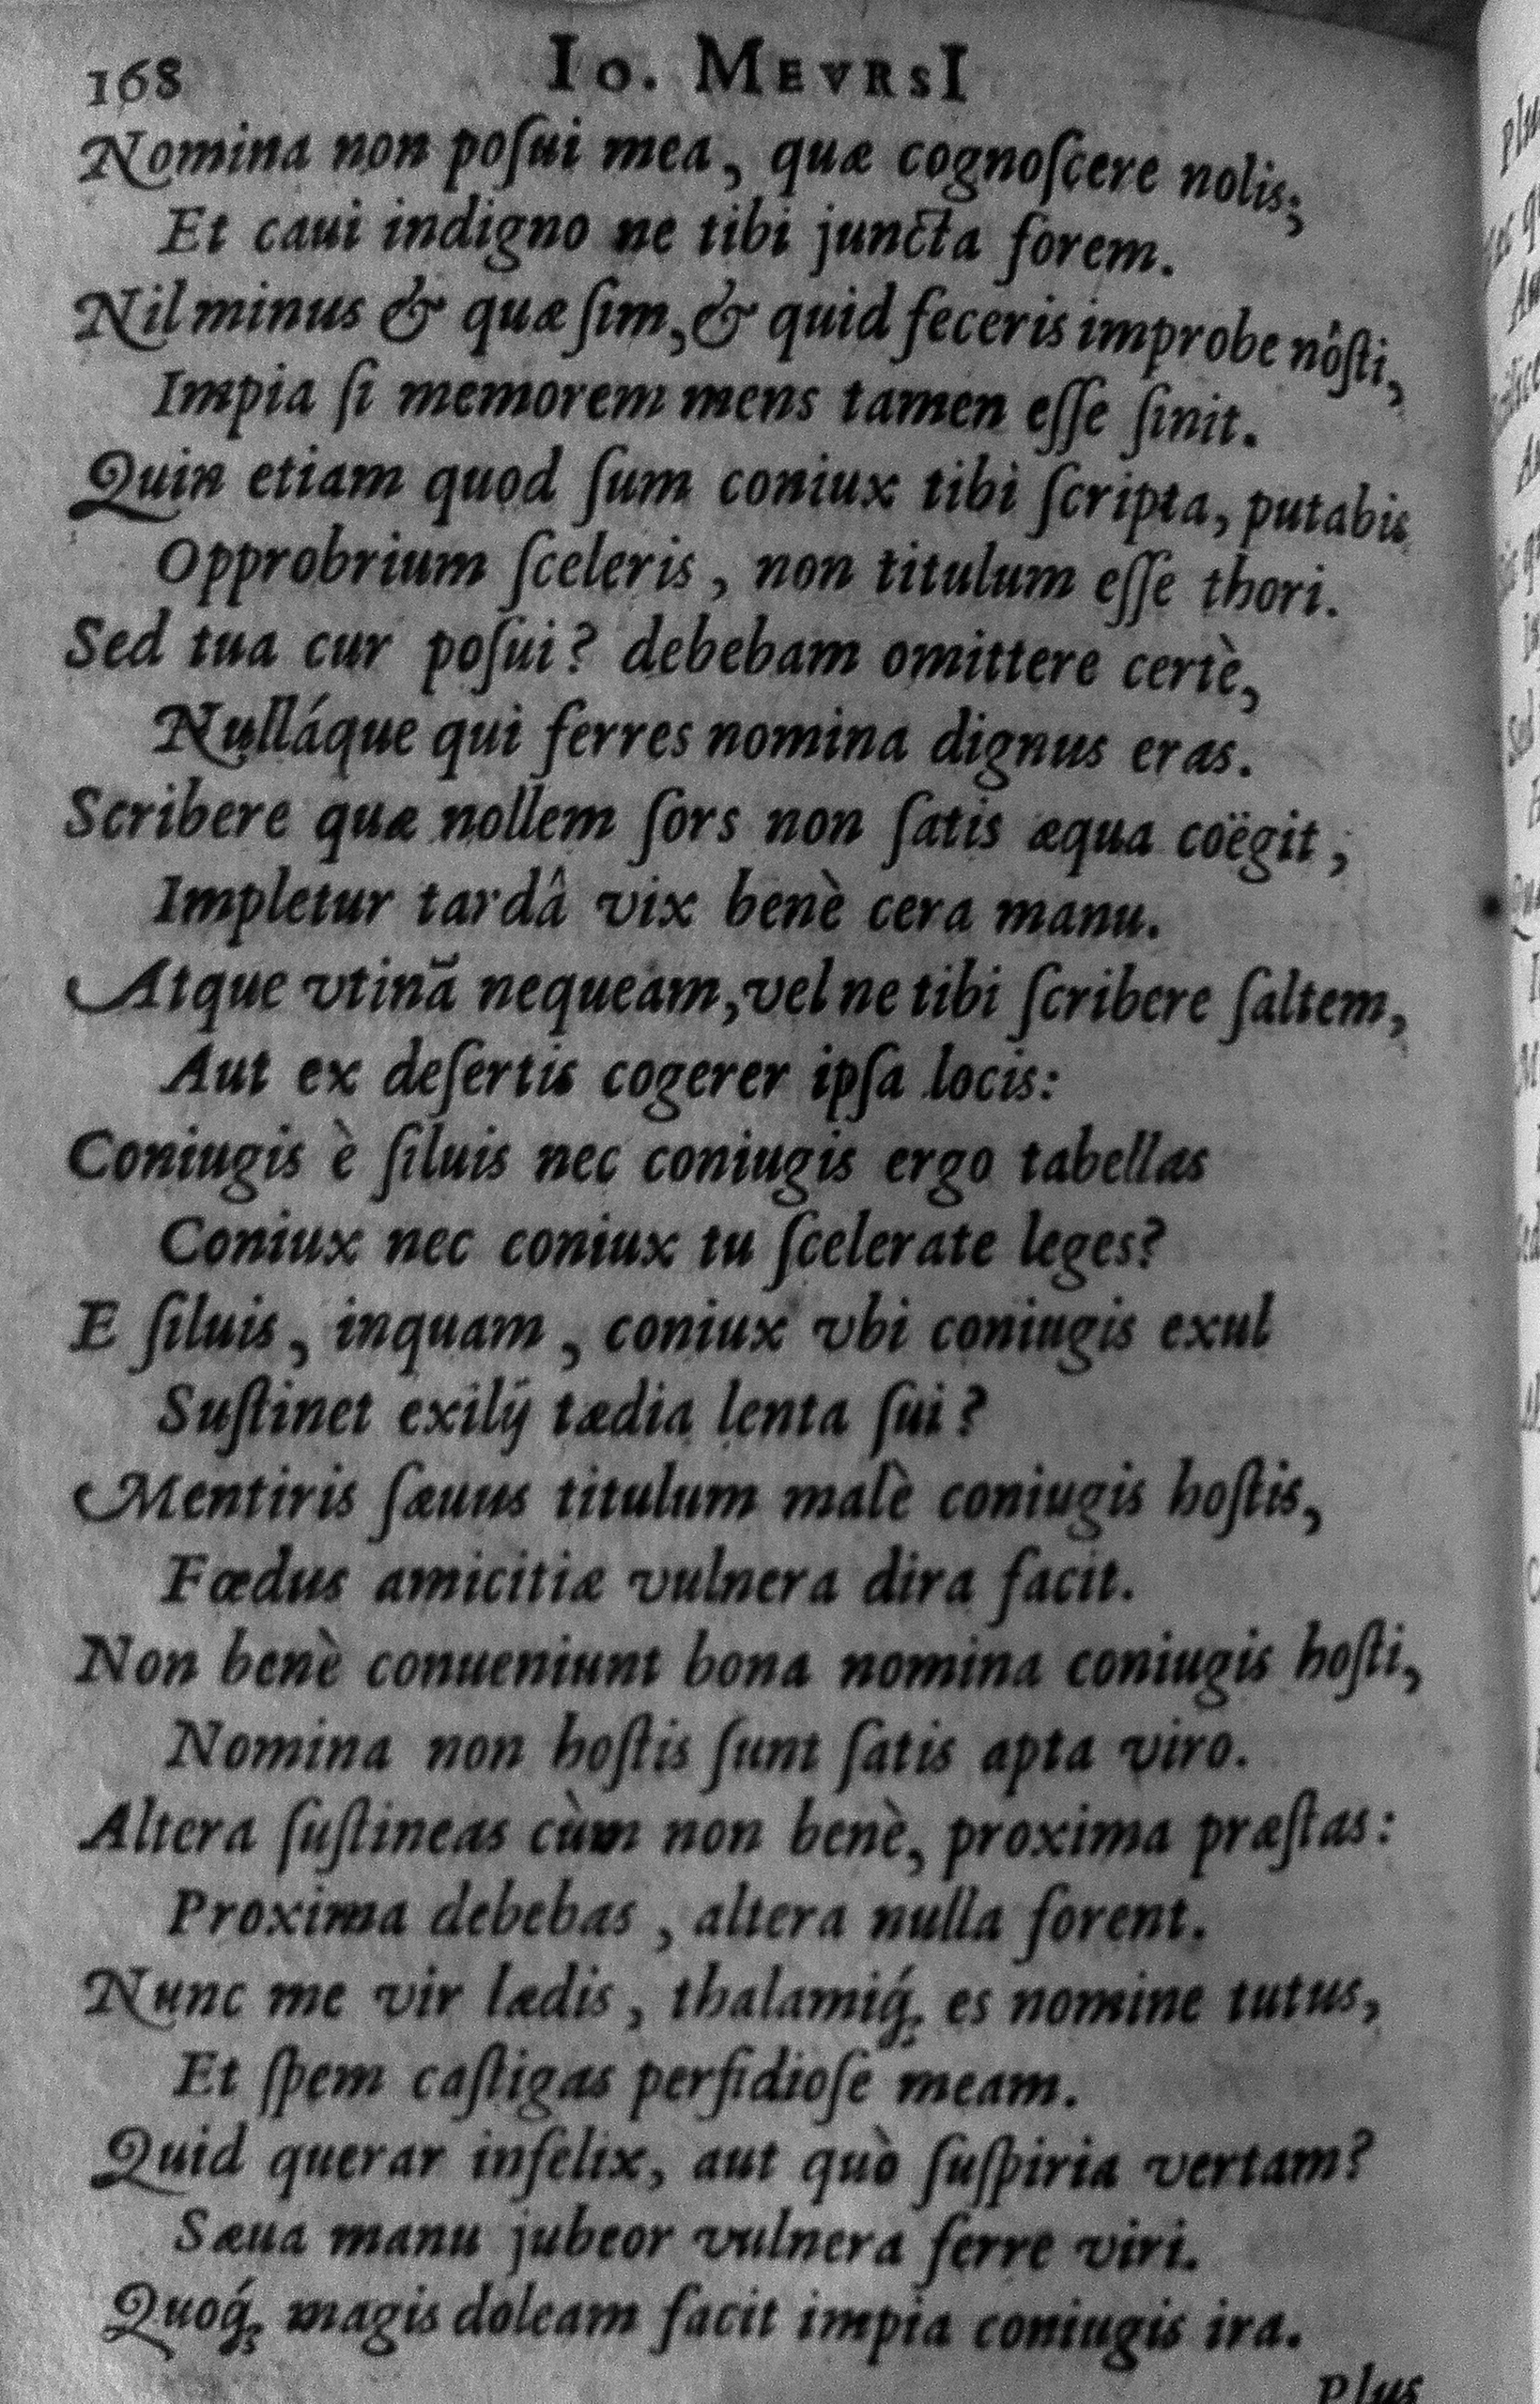 168 Io. MEVRSI
Nomina non poſui mea, quæ cognoſcere nolis;
Et caui indigno ne tibi juncta forem.
Nil minus & quæ ſim, & quid feceris improbe nôſti,
Impia ſi memorem mens tamen eſſe ſinit.
Quin etiam quod ſum coniux tibi ſcripta, putabis
Opprobrium ſceleris, non titulum eſſe thori.
Sed tua cur poſui? debebam omittere certè,
Nulláque qui ferres nomina dignus eras.
Scribere quæ nollem ſors non ſatis æqua coëgit;
Impletur tardâ vix benè cera manu.
Atque vtinā nequeam, vel ne tibi ſcribere ſaltem,
Aut ex deſertis cogerer ipſa locis:
Coniugis è ſiluis nec coniugis ergo tabellas
Coniux nec coniux tu ſcelerate leges?
E ſiluis, inquam, coniux vbi coniugis exul
Suſtinet exilij tædia lenta ſui?
Mentiris ſæuus titulum malè coniugis hoſtis,
Fœdus amicitiæ vulnera dira facit.
Non benè conueniunt bona nomina coniugis hoſti,
Nomina non hoſtis ſunt ſatis apta viro.
Altera ſuſtineas cùm non benè, proxima præſtas:
Proxima debebas, altera nulla forent.
Nunc me vir lædis, thalamiq́; es nomine tutus,
Et ſpem caſtigas perfidioſe meam.
Quid querar infelix, aut quò ſuſpiria vertam?
Sæua manu jubeor vulnera ferre viri.
Quoq́; magis doleam facit impia coniugis ira.
Plus